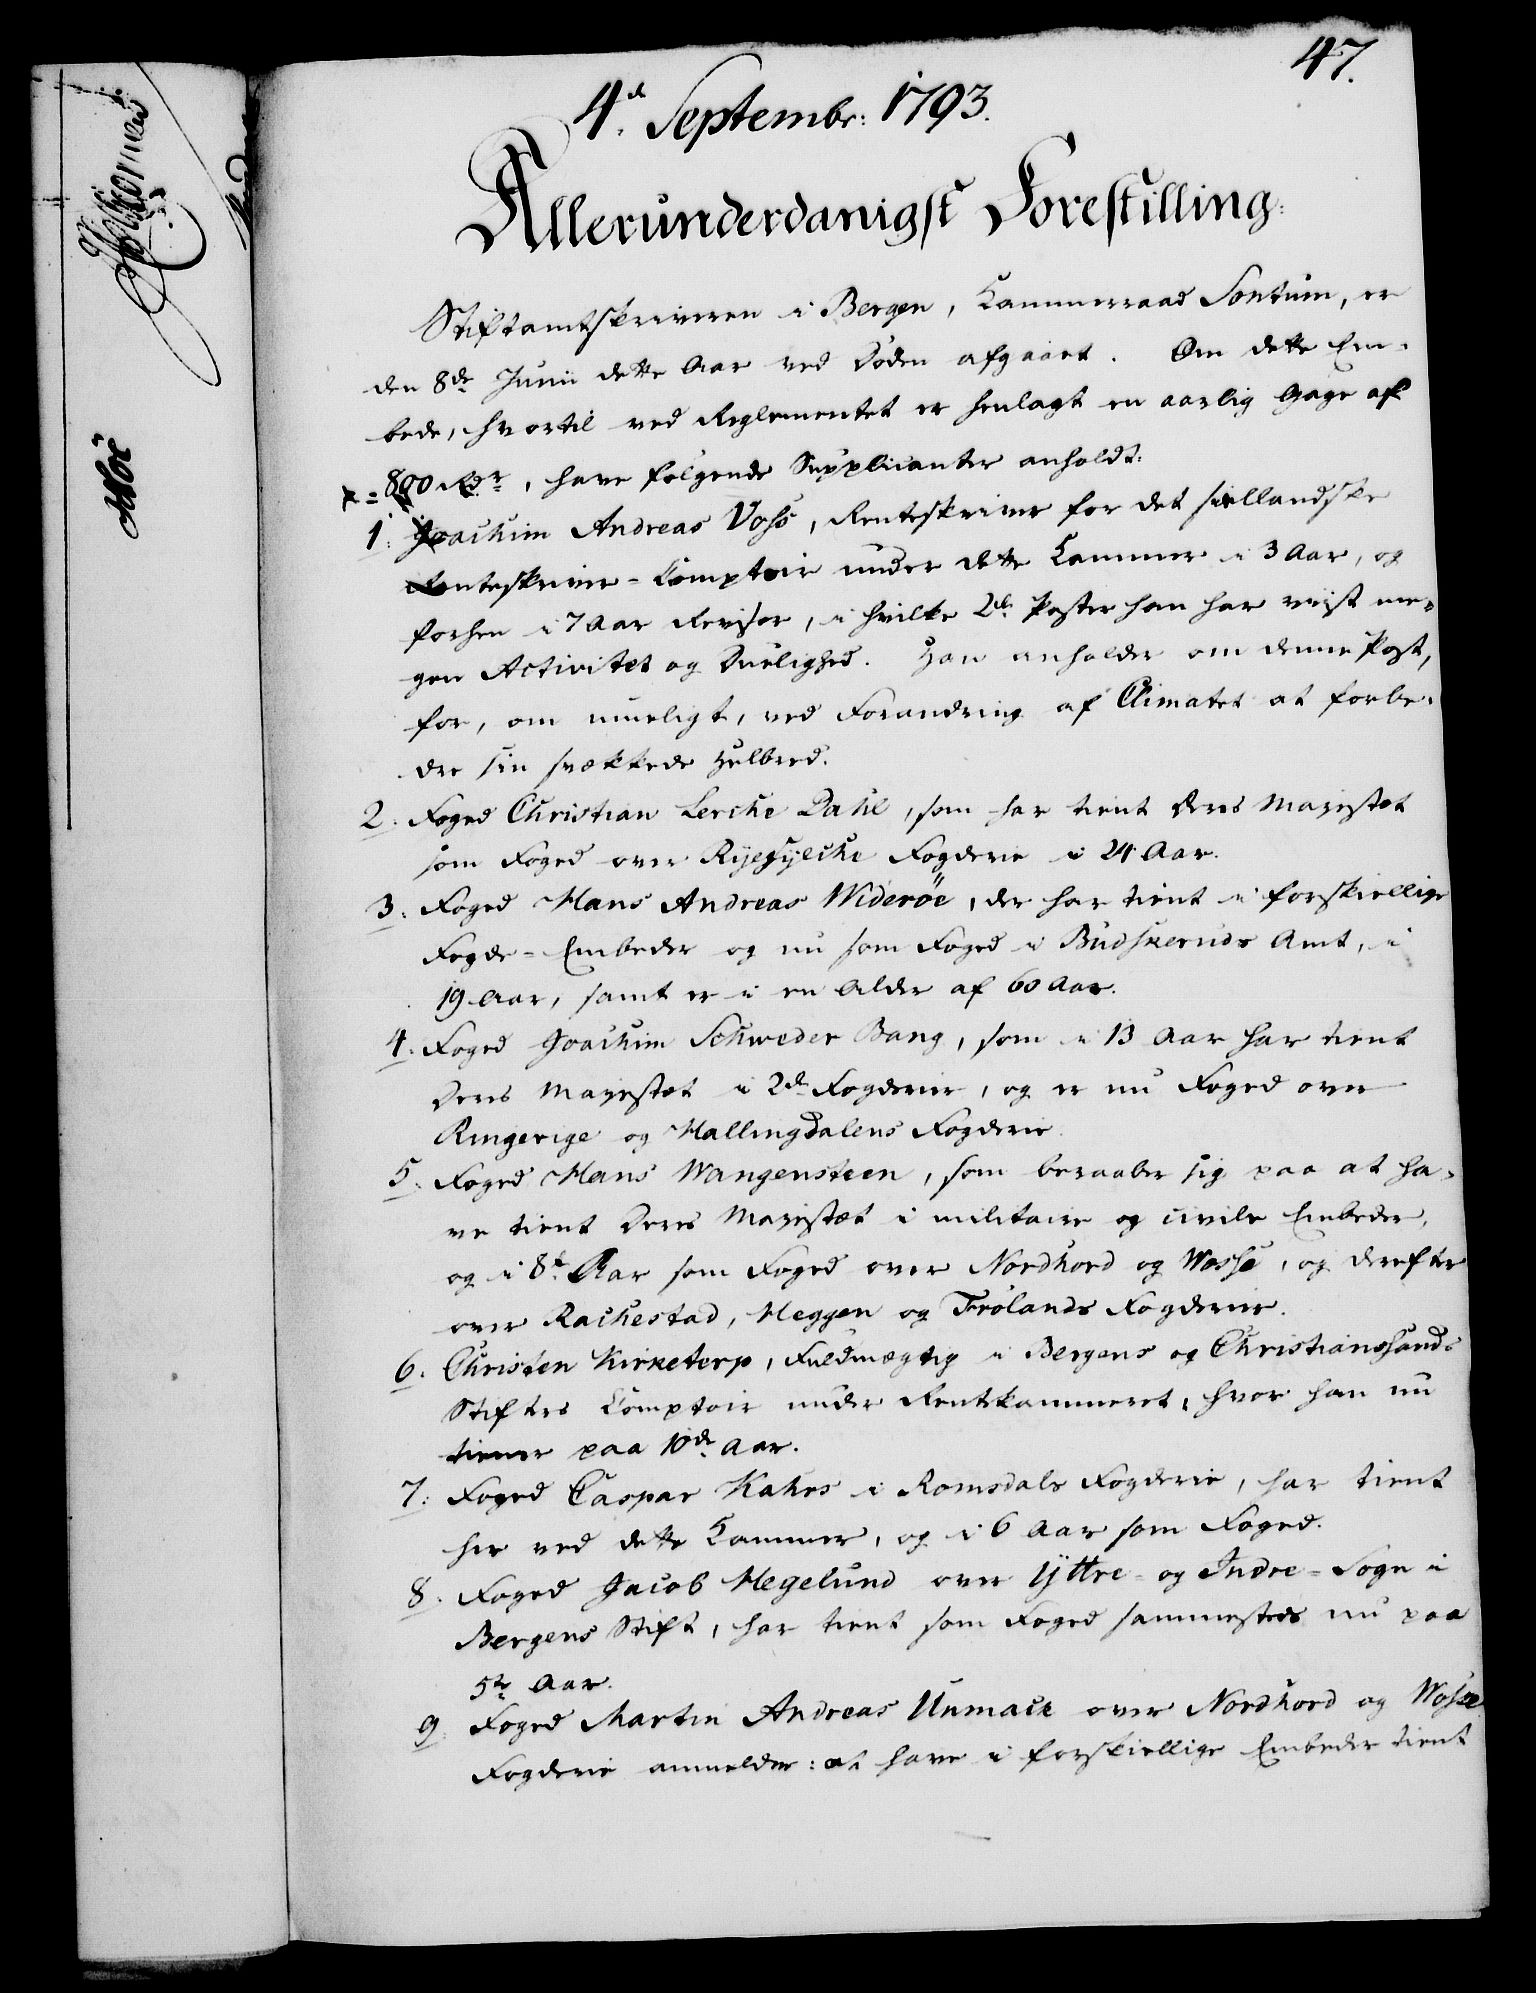 47.
4d. Septembr: 1793.
Allerunderdanigst Forestilling.
Stiftamtskriveren i Bergen, Kammerraad Sontum, er
den 8de Junii dette Aar ved Døden afgaaet. Om dette Em-
bede, hvortil ved Reglementet er henlagt en aarlig Gage af
800 Rdr, have følgende Supplicanter anholdt:
1. Joachim Andreas Voss, Renteskriver for det siellandske
Renteskriver-Comptoir under dette Kammer i 3 Aar, og
forhen i 7 Aar Revisor, i hvilke 2de Poster han har viist me-
gen Activitet og Duelighed. Han anholder om denne Post,
for, om mueligt, ved Forandring af Climatet at forbe-
dre sin svækkede Helbred.
2. Foged Christian Lerche Dahl, som har tient Deres Majestæt
som Foged over Ryefylche Fogderie i 24 Aar.
3. Foged Hans Andreas Widerøe, der har tient i forskiellige
Fogde-Embeder og nu som Foged i Budskeruds Amt, i
19 Aar, samt er i en Alder af 60 Aar.
4. Foged Joachim Schweder Bang, som i 13 Aar har tient
Deres Majestæt i 2de Fogderier, og er nu Foged over
Ringerige og Hallingdalens Fogderie.
5. Foged Hans Wangensteen, som beraaber sig paa at ha-
ve tient Deres Majestæt i militaire og civile Embeder,
og i 8t. Aar som Foged over Nordhord og Wosse, og derefter
over Rachestad, Heggen og Frølands Fogderier.
6. Christen Kirketerp, Fuldmægtig i Bergens og Christianssands
Stifters Comptoir under Rentekammeret, hvor han nu
tiener paa 10de Aar.
7. Foged Caspar Kahrs i Romsdals Fogderie, har tient
her ved dette Kammer, og i 6 Aar som Foged.
8. Foged Jacob Hegelund over Yttre- og Indre-Sogn i
Bergens Stift, har tient som Foged sammesteds nu paa
5te Aar.
9. Foged Martin Andreas Unmack over Nordhord og Wosse
Fogderie anmelder: at have i forskiellige Embeder tient